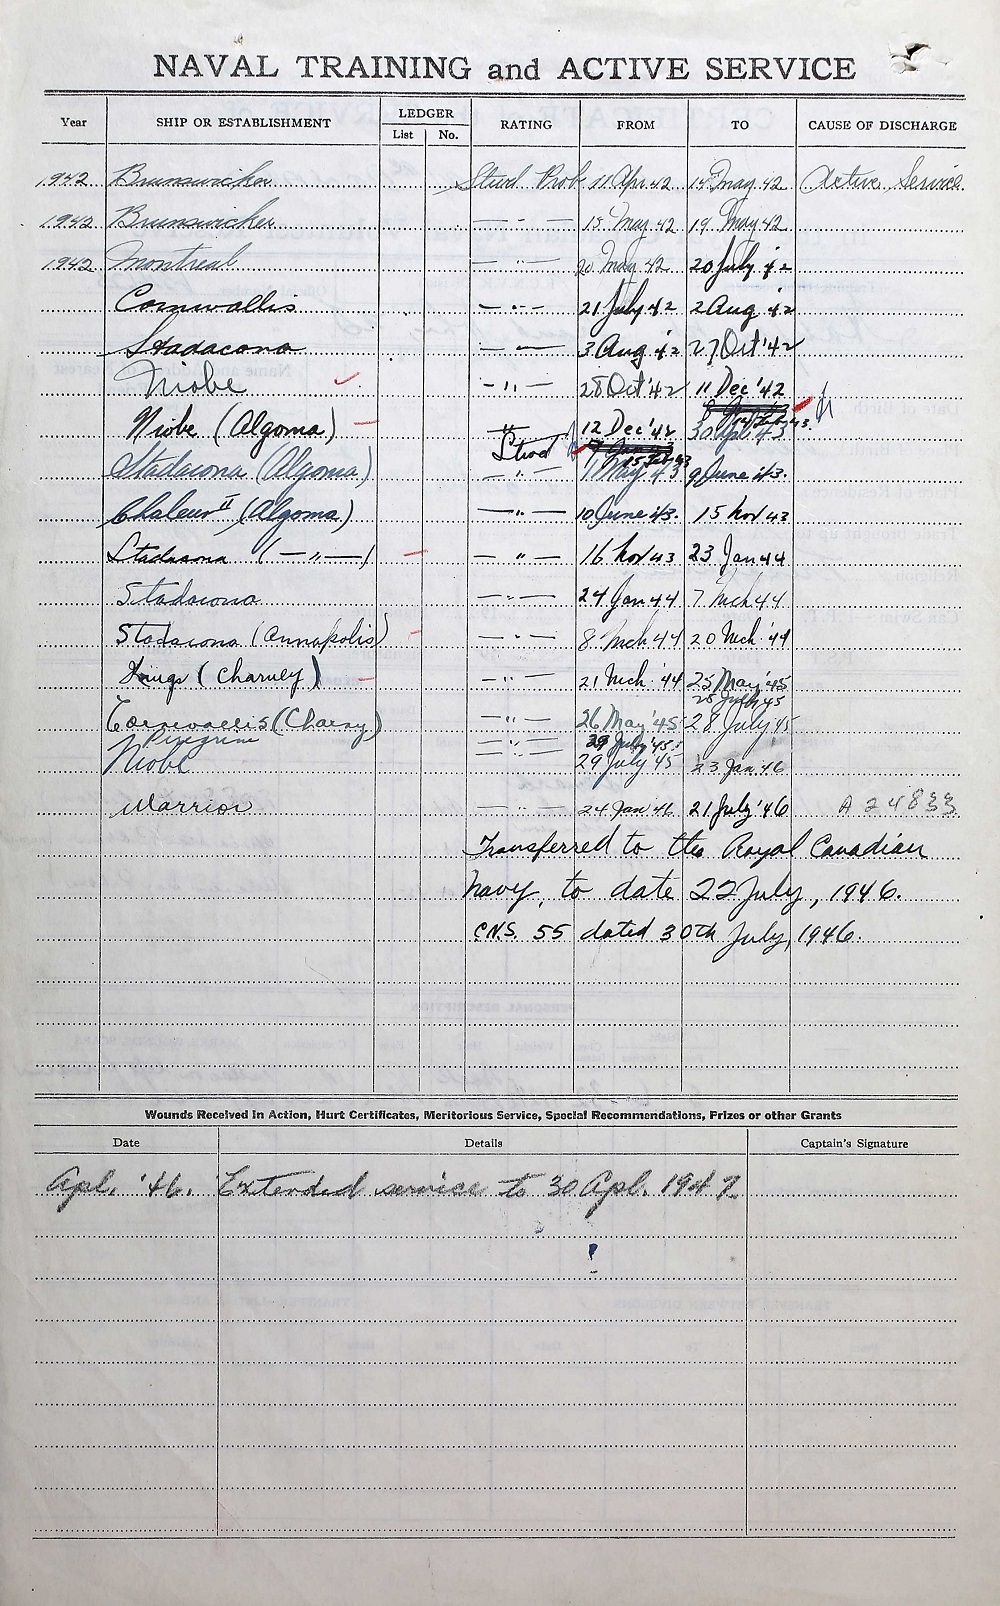 NAVAL TRAINING and ACTIVE SERVICE
Year SHIP OR ESTABLISHMENT LEDGER List No. RATING FROM TO CAUSE OF DISCHARGE
1942 Brunswicker Stwd Prob 11 Apr 42 14 May 42 Active Service
1942 Brunswicker — " — 15 May 42 19 May 42
1942 Montreal — " — 20 May 42 20 July 42
Cornwallis — " — 21 July 42 2 Aug 42
Stadacona — " — 3 Aug 42 27 Oct '42
Niobe — " — 28 Oct '42 11 Dec '42
Niobe (Algoma) — " — 12 Dec '42 30 Apl 43
14 Feb 43
Stwd 15 Feb 43
Stadacona (Algoma) " 1 May 43 9 June 43.
Chaleur II (Algoma) — " — 10 June 43. 15 Nov 43
Stadacona ( — " — ) — " — 16 Nov 43 23 Jan 44
Stadacona — " — 24 Jan 44 7 Mch 44
Stadacona (Annapolis) — " — 8 Mch 44 20 Mch '44
Kings (Charney) — " — 21 Mch '44 25 May '45
Cornwallis (Charny) — " — 26 May '45 28 July 45
Peregrine — " — July '45
Niobe 29 July '45 23 Jan 46
Warrior — " — 24 Jan '46 21 July '46 A 24833
Transferred to the Royal Canadian
Navy, to date 22 July, 1946.
C.N.S. 55 dated 30th July, 1946.
Wounds Received in Action, Hurt Certificates, Meritorious Service, Special Recommendations, Prizes or other Grants
Date Details Captain's Signature
Apl. '46. Extended service to 30 Apl. 1947